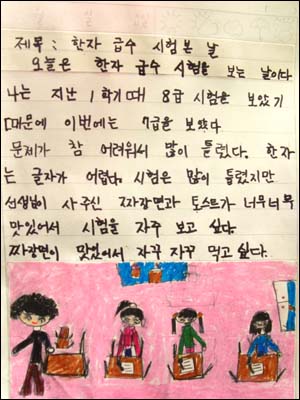 제목: 한자 급수 시험 본 날
오늘은 한자 급수 시험을 보는 날이다
나는 지난 1학기때 8급 시험을 보았기
때문에 이번에는 7급을 보았다
문제가 참 어려워서 많이 틀렸다. 한자
는 글자가 어렵다. 시험은 많이 틀렸지만
선생님이 사주신 짜장면과 토스트가 너무너무
맛있어서 시험을 자주 보고 싶다.
짜장면이 맛있어서 자꾸 자꾸 먹고 싶다.